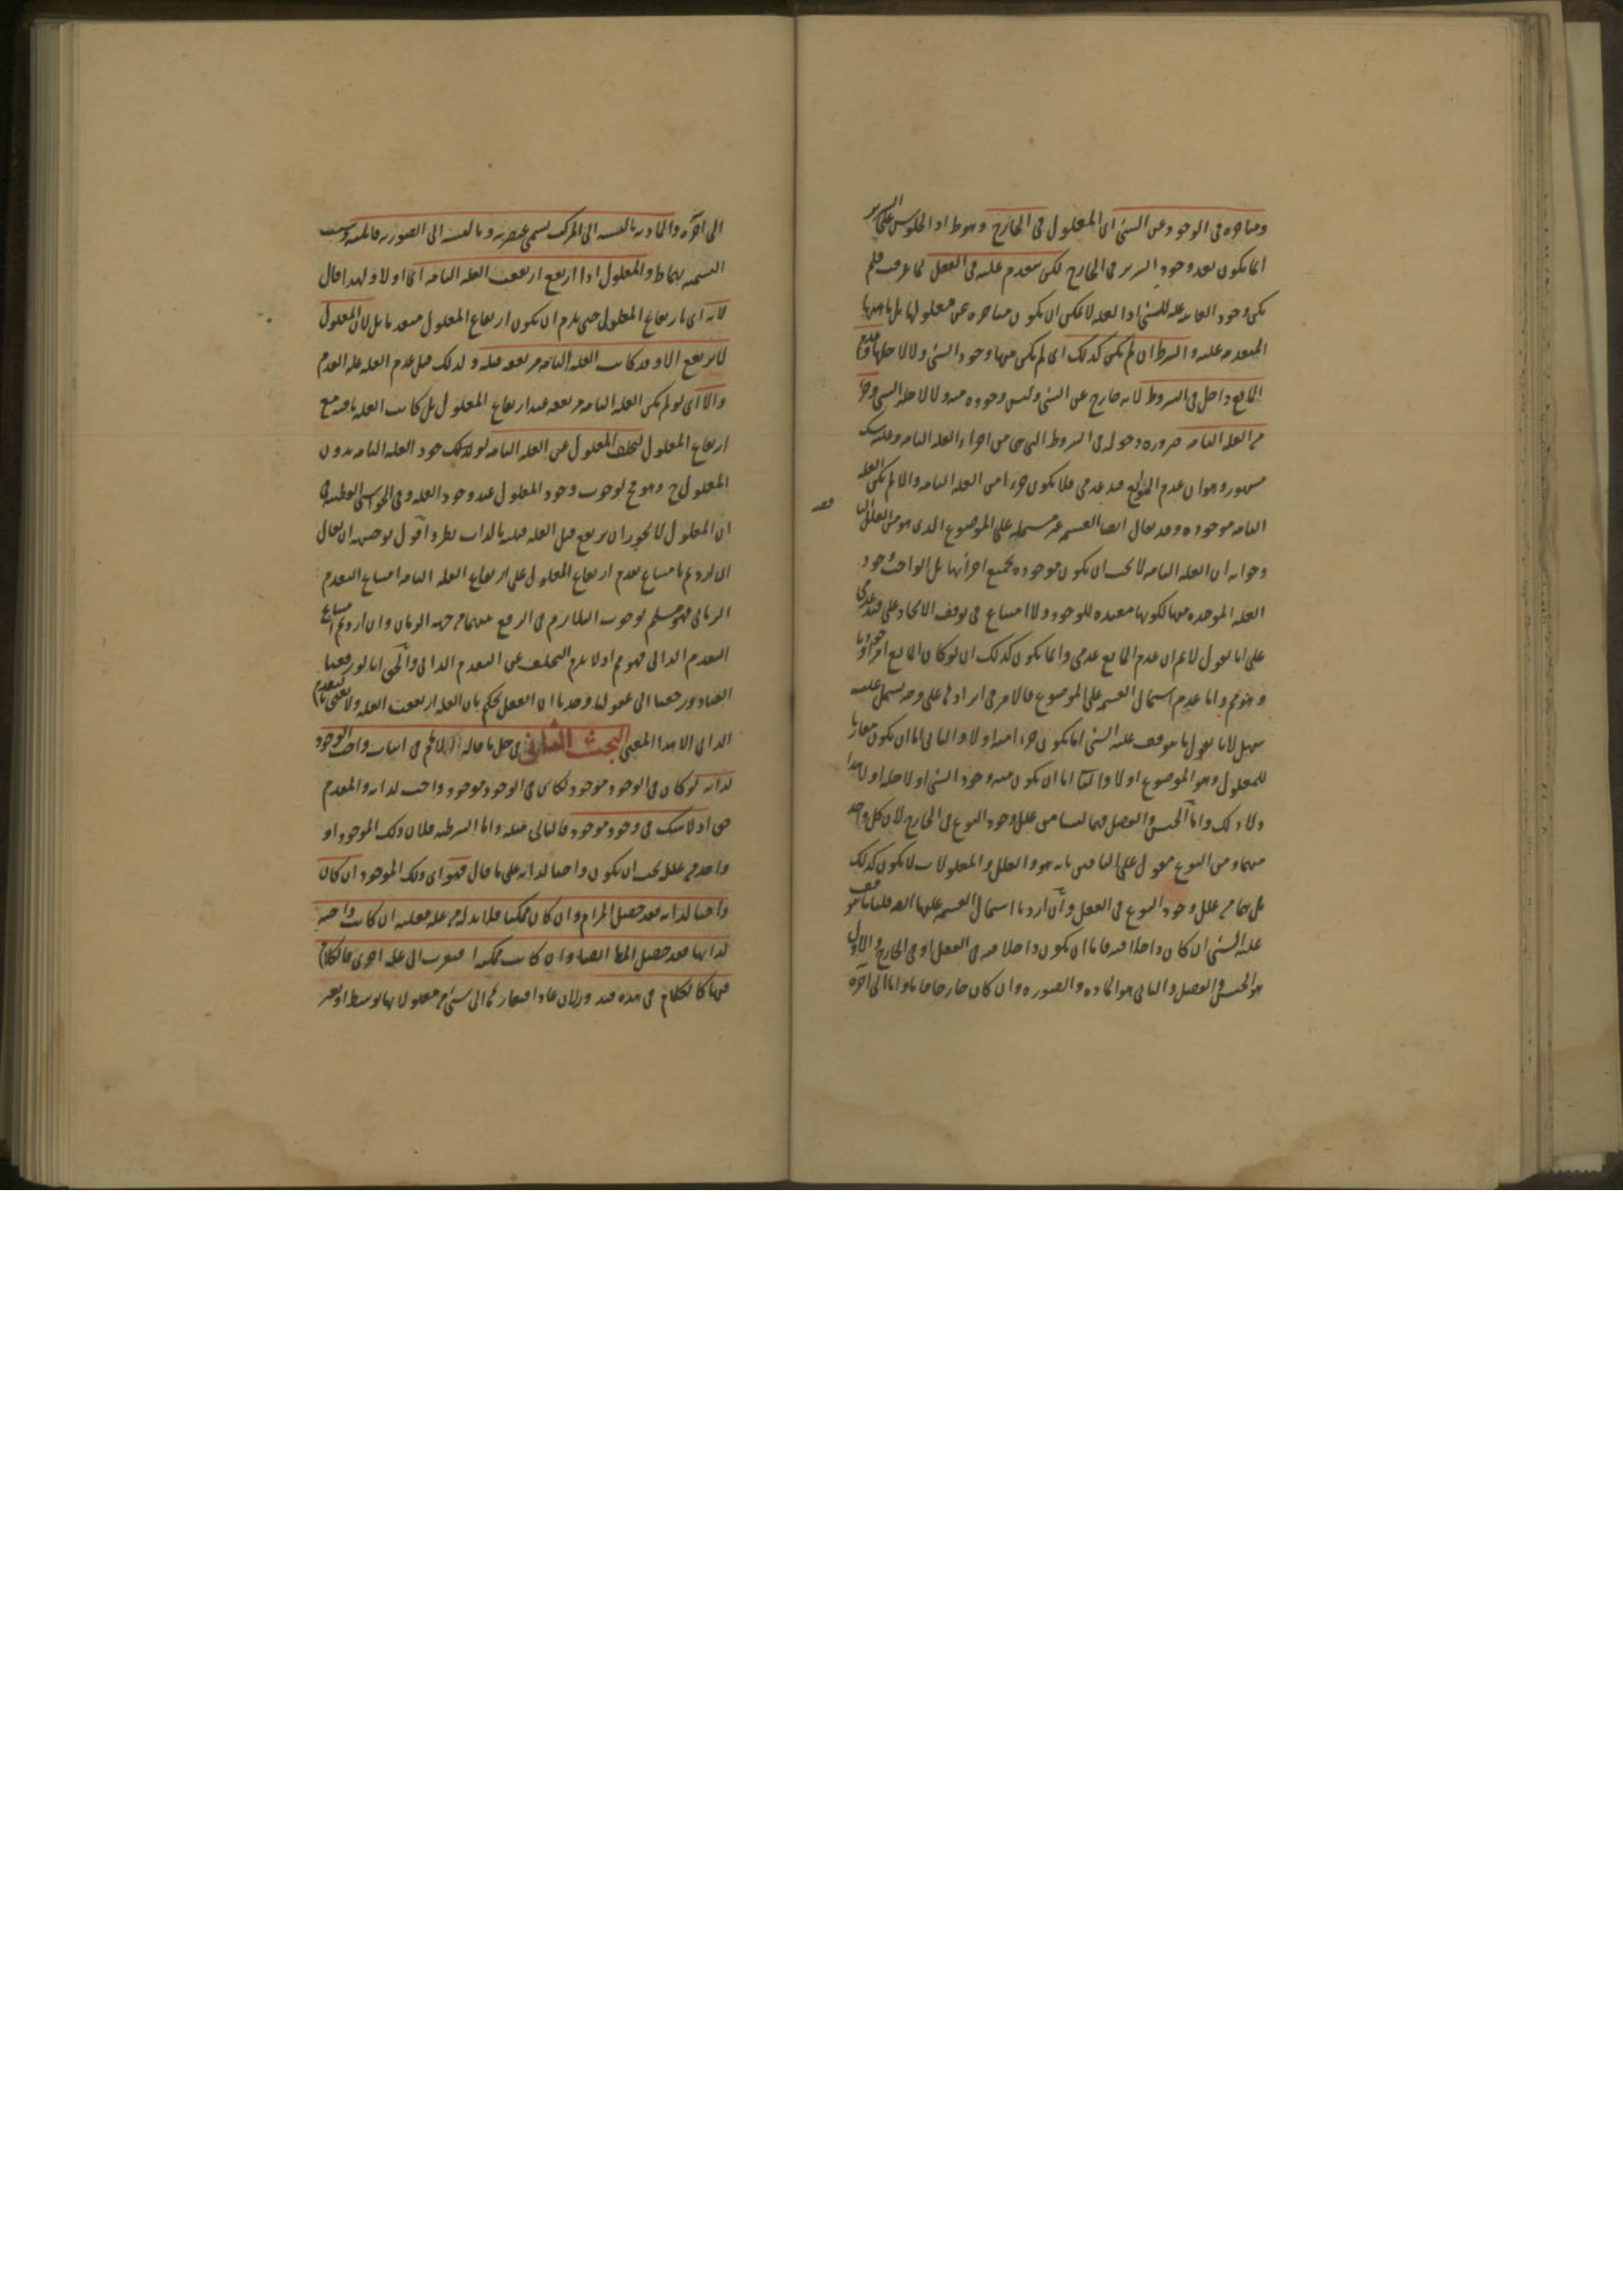 ومتاخرة فى الوجود عن الشئ اى المعلول فى الخارج وهو ظ اذ الجلوس على السرير
انما يكون بعد وجود السرير فى الخارج لكن يتقدم عليه فى العقل لما عرفت فلم
يكن وجود الغاية علة للشئ اذ العلة لا يمكن ان يكون متاخرة عن معلولها بل ماهيتها
المتقدمة عليه والشرط ان لم يكن كذلك اى لم يكن منها وجود الشئ ولا لاجلها وعدم
المانع داخل فى الشروط لانه خارج عن الشئ وليس وجوده منه ولا لاجله الشئ
من العلة التامة ضرورة دخوله فى الشروط التى هى من اجزاء العلة التامة وعليه شك
مشهور وهو ان عدم المانع قيد عدمى فلا يكون جزءا من العلة التامة والا لم يكن العلة
التامة موجودة وقد يقال ايضا القسمة غير مشتملة على الموضوع الذى هو من العلل
وجوابه ان العلة التامة لا يجب ان يكون موجودة بجميع اجزائها بل الواجب وجود
العلة الموجدة منها لكونها مفيدة للوجود ولا امتناع فى توقف الايجاد على قيد عدمى
على انا نقول لا نم ان عدم المانع عدمى وانما يكون كذلك ان لو كان المانع امرا وجوديا
وهو مم واما عدم اشتمال القسمة على الموضوع فالامر فى ايرادها على وجه يشتمل عليه
سهل لانا نقول ما يتوقف عليه الشئ اما يكون جزءا منه اولا والثانى اما ان يكون مقارنا
للمعلول وهو الموضوع اولا والثا اما ان يكون منه وجود الشئ او لاجله او لا هذا
ولا ذلك واما الجنس والفصل فهما ليسا من علل وجود النوع فى الخارج لان كل واحد
منهما ومن النوع مقول على الباقين بانه هو والعلل والمعلولات لا يكون كذلك
بل هما من علل وجود النوع فى العقل وان اردنا اشتمال القسمة عليها ايضا قلنا ما يتوقف
عليه الشئ ان كان داخلا فيه فاما ان يكون داخلا فيه فى العقل او فى الخارج والاول
هو الجنس والفصل والثانى هو المادة والصورة وان كان خارجا فاما واما الى آخره
الى آخره والمادية بالنسبة الى المركب يسمى عنصرية وبالنسبة الى الصورية قابلية
التسمية بهما ظ والمعلول اذا ارتفع ارتفعت العلة التامة اما اولا ولهذا قال
لانه اى بارتفاع المعلول حتى يلزم ان يكون ارتفاع المعلول متقدما بل لان المعلول
لا يرتفع الا وقد كانت العلة التامة مرتفعة قبله ولذلك قيل عدم العلة علة العدم
والا اى لو لم يكن العلة التامة مرتفعة عند ارتفاع المعلول بل كانت العلة باقية مع
ارتفاع المعلول لتخلف المعلول عن العلة التامة لوجود العلة التامة بدون
المعلول ح وهو مح لوجوب وجود المعلول عند وجود العلة وفى الحواشى القطبية
ان المعلول لا يجوز ان يرتفع قبل العلة قبلية بالذات نظر واقول توجيهه ان يقال
ان اردتم بامتناع تقدم ارتفاع المعلول على ارتفاع العلة التامة امتناع التقدم
الزمانى فهو مسلم لوجوب التلازم فى الرفع بينهما من جهة الزمان وان اردتم امتناع
التقدم الذاتى فهو مم اذ لا يلزم التخلف عن التقدم الذاتى والحق انا لو رفعنا
العناد ورجعنا الى عقولنا وجدنا ان العقل يحكم بان العلة ارتفعت العلة ولا نعنى بالتقدم
الذاتى الا هذا المعنى البحث الثانى فى حل ما قاله الامام فى اثبات واجب الوجود
لذاته لو كان فى الوجود موجود لكان فى الوجود موجود واجب لذاته والمقدم
حق اذ لا شك فى وجود موجود فالتالى مثله واما الشرطية فلان ذلك الموجود او
واحد من علله يجب ان يكون واجبا لذاته على ما قال فهو اى ذلك الموجود ان كان
واجبا لذاته فقد حصل المرام وان كان ممكنا فلا بد له من علة فعلته ان كانت واجبة
لذاتها فقد حصل المط ايضا وان كانت ممكنة افتقرت الى علة اخرى فالكلام
فيها كالكلام فى هذه فيدور ان عاد افتقارها الى شئ من معلولاتها بوسط او بغير